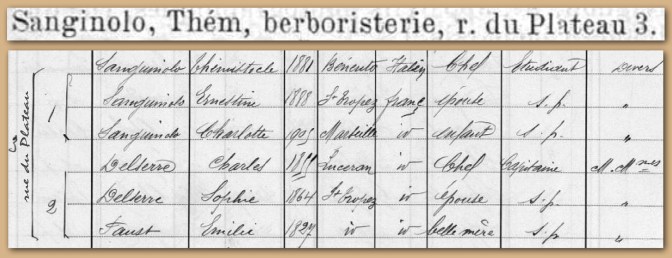 Sanginolo, Thém, berboristerie, r. du Plateau 3.
Sanguinolo Thémistocle 1881 Bénévto Italien Chef Etudiant Divers
1 Sanguinolo Ernestine 1888 St Tropez franç épouse s. p. "
Sanguinolo Charlotte 1905 Marseille id enfant s. p. "
rue du Plateau
Delserre Charles Luceram id Chef Capitaine M. Mmes
2 Delserre Sophie 1864 St Tropez id épouse s. p. "
Faust Emilie 1827 id id belle mère s. p. "